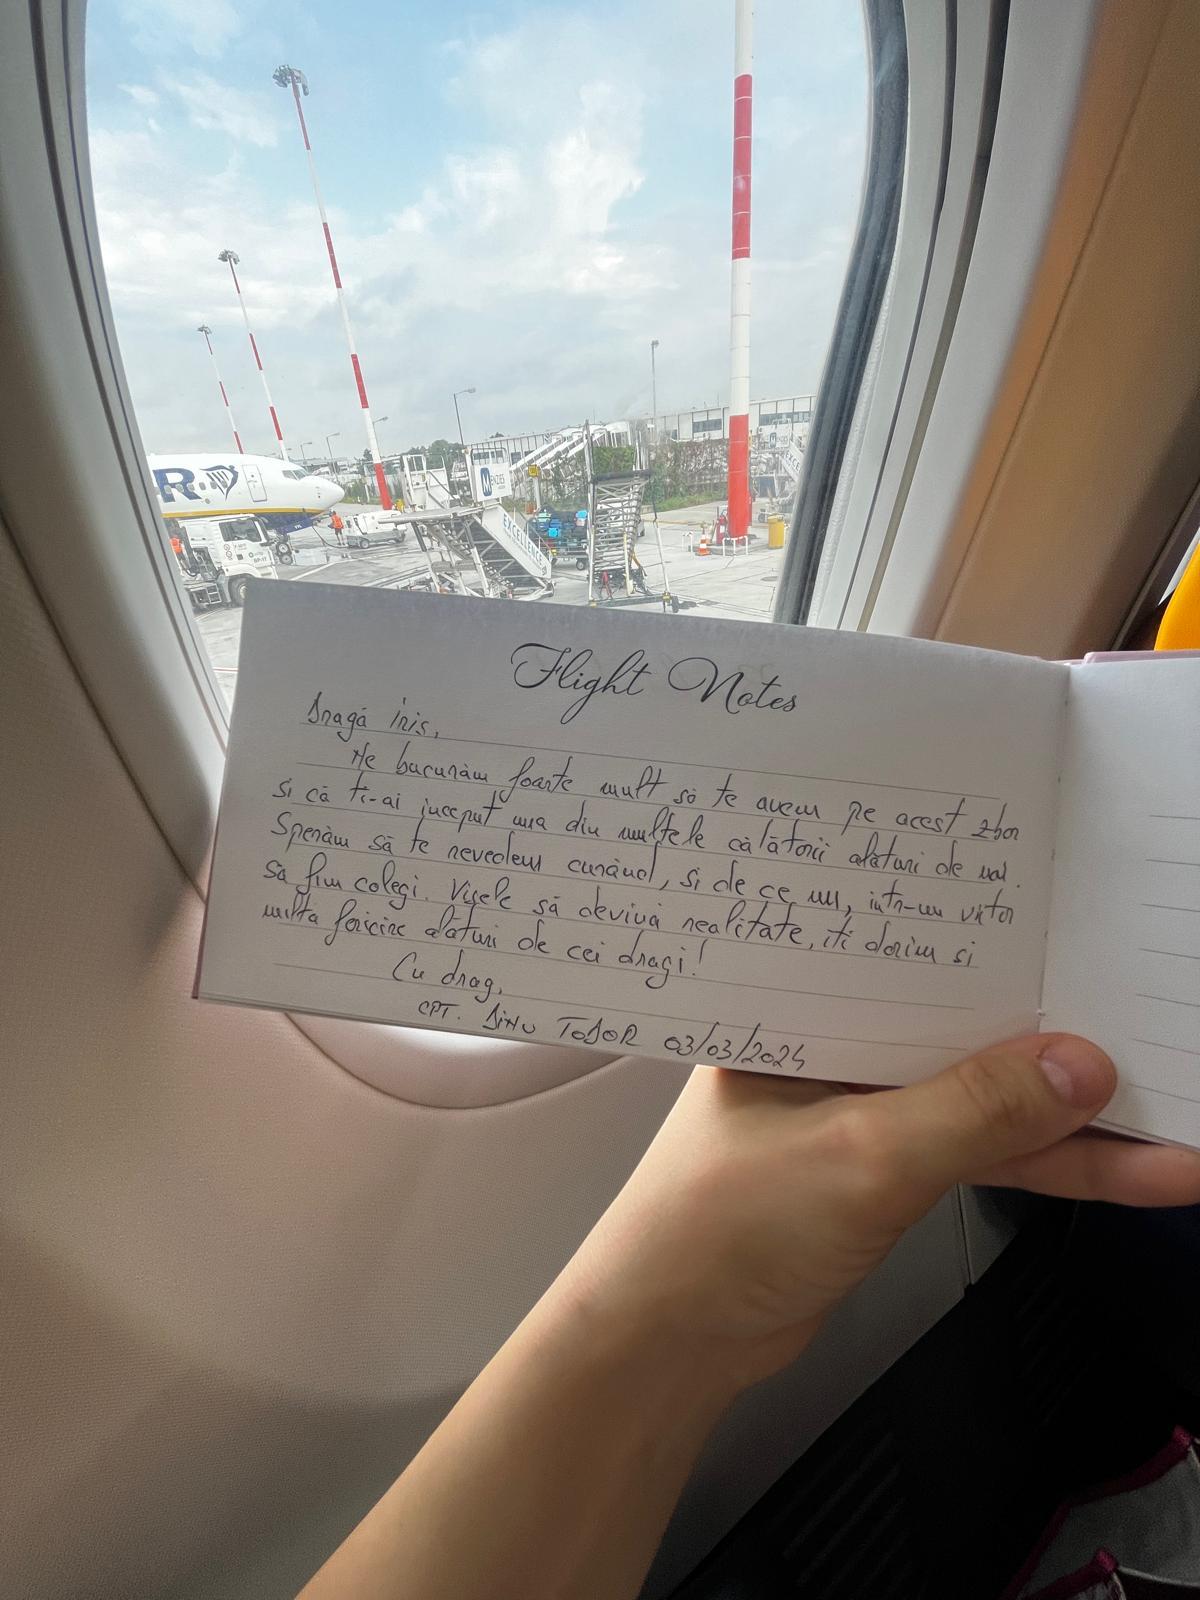 R
MENZIES
EXCELLENCE
Flight Notes
Dragă Iris,
Ne bucurăm foarte mult să te avem pe acest zbor
si că ti-ai inceput una din multele călătorii alături de noi.
Sperăm să te revedem curând, si de ce nu, intr-un viitor
să fim colegi. Visele să devină realitate, iti dorim si
multa fericire alături de cei dragi!
Cu drag,
CPT. DINU TODOR 03/03/2024